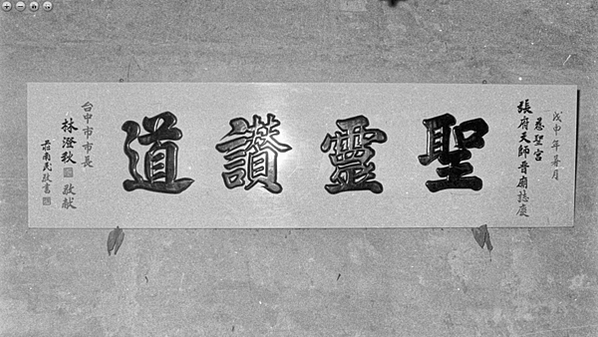 戊申年暮月
慈聖宮
張府天師晉廟誌慶
聖靈讚道
台中市市長
林澄秋 敬献
莊南民敬書